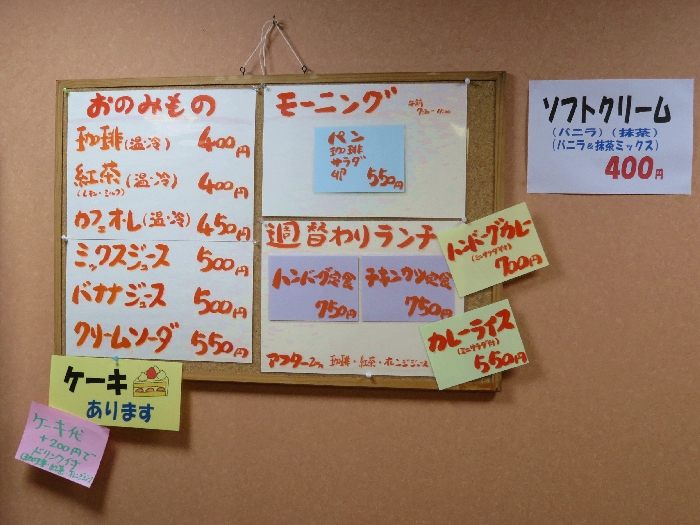 おのみもの
珈琲(温・冷) 400円
紅茶(温・冷) 400円
(レモン・ミルク)
カフェオレ(温・冷) 450円
ミックスジュース 500円
バナナジュース 500円
クリームソーダ 550円
ケーキ
あります
ケーキ代
+200円で
ドリンク付
モーニング 午前
パン
珈琲
サラダ
卵 550円
週替わりランチ
ハンバーグ定食
750円
チキンカツ定食
750円
アフター 珈琲・紅茶・オレンジジュース
ハンバーグカレー
(ミニサラダ付)
700円
カレーライス
(ミニサラダ付)
550円
ソフトクリーム
(バニラ)(抹茶)
(バニラ&抹茶ミックス)
400円